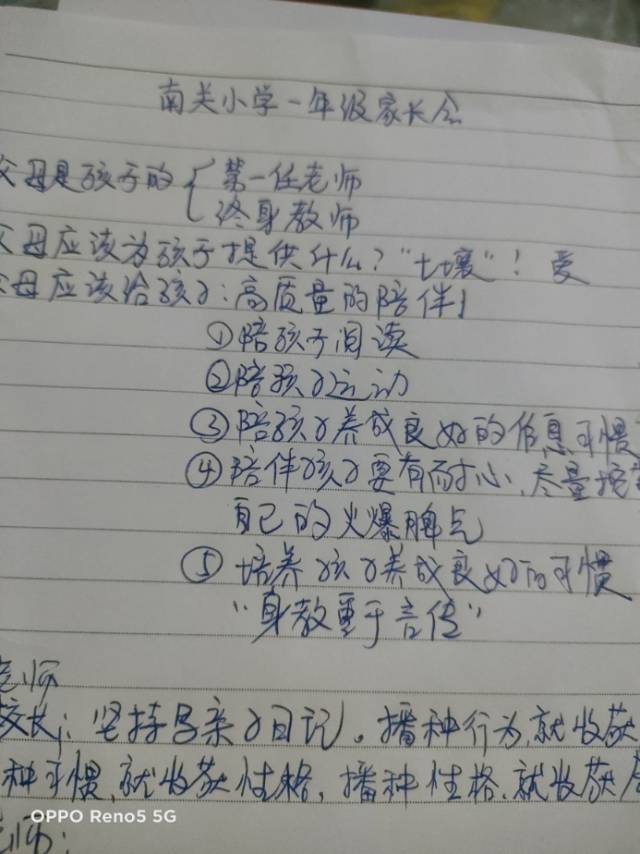 南关小学一年级家长会
父母是孩子的 第一任老师
终身教师
父母应该为孩子提供什么?"土壤"!爱
父母应该给孩子:高质量的陪伴!
①陪孩子阅读
②陪孩子运动
③陪孩子养成良好的作息习惯
④陪伴孩子要有耐心、尽量控
自己的火爆脾气
⑤培养孩子养成良好的习惯
"身教重于言传"
老师
校长:坚持写亲子日记。播种行为,就收获
种习惯,就收获性格,播种性格,就收获
老师:
OPPO Reno5 5G